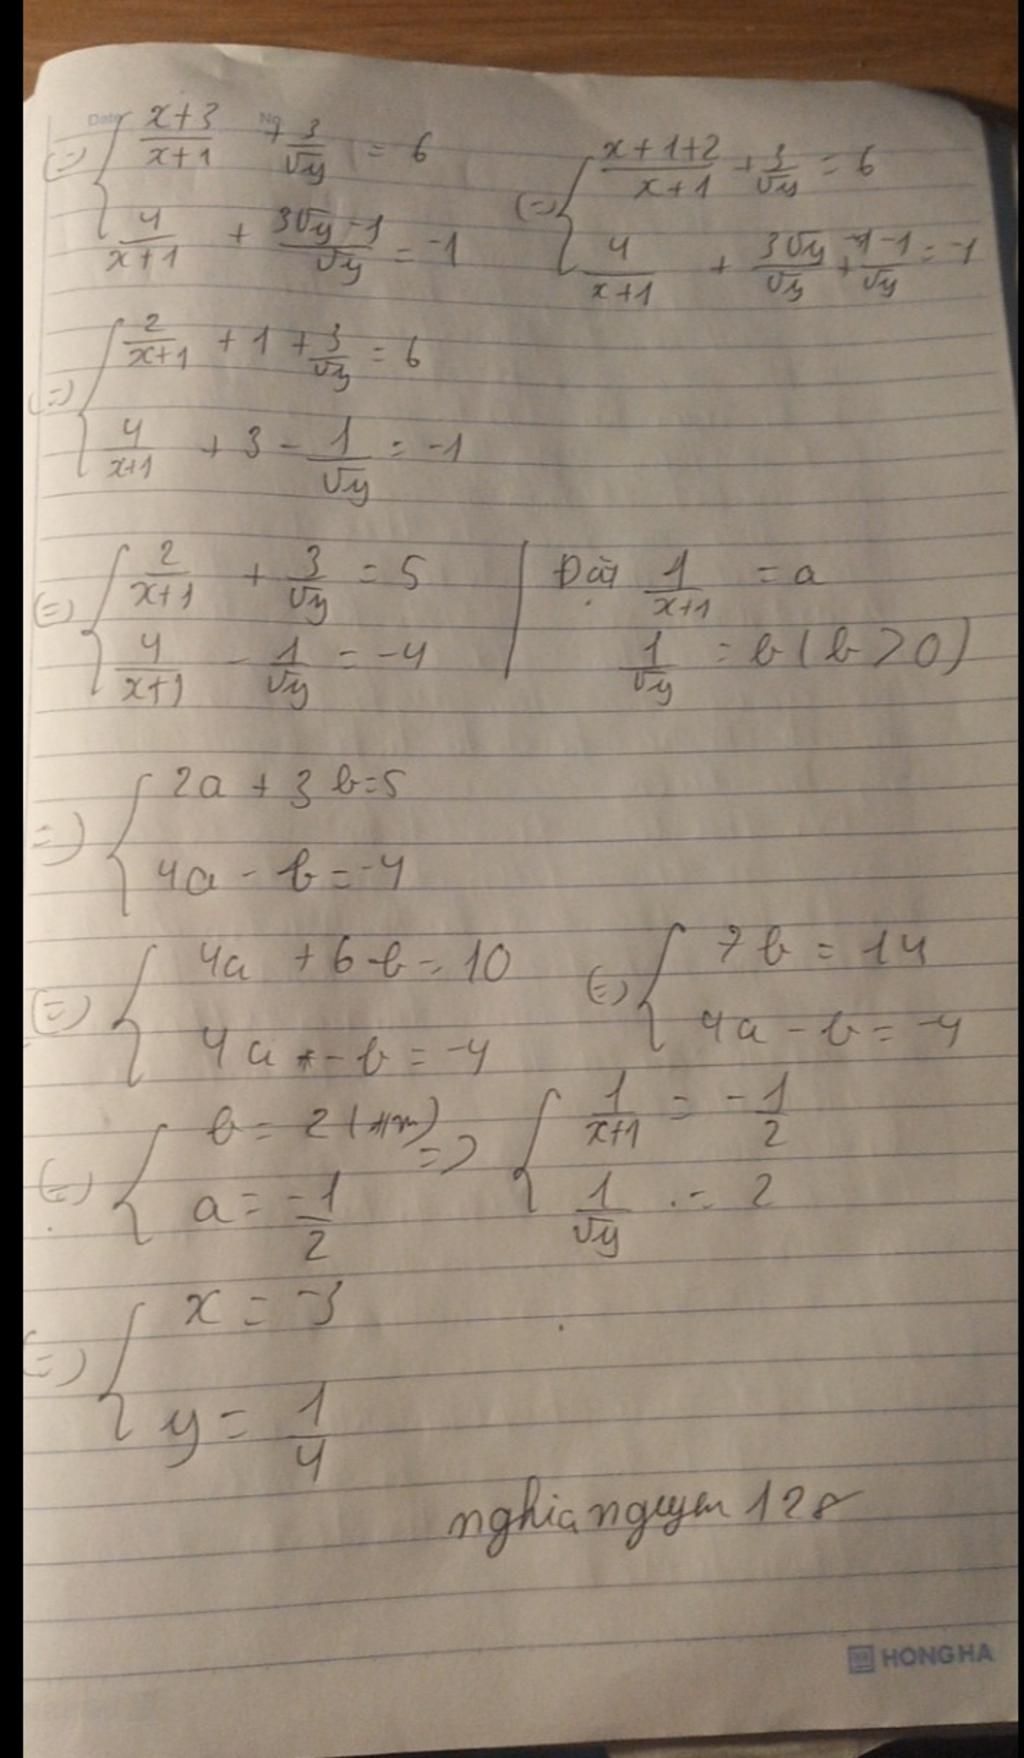 Date No
(=) { (x+3)/(x+1) + 3/√y = 6
4/(x+1) + (3√y -1)/√y = -1
(=) { (x+1+2)/(x+1) + 3/√y = 6
4/(x+1) + 3√y/√y + -1/√y = -1
(=) { 2/(x+1) + 1 + 3/√y = 6
4/(x+1) + 3 - 1/√y = -1
(=) { 2/(x+1) + 3/√y = 5
4/(x+1) - 1/√y = -4
Đặt 1/(x+1) = a
1/√y = b (b > 0)
=) { 2a + 3b = 5
4a - b = -4
(=) { 4a + 6b = 10
4a - b = -4
(=) { 7b = 14
4a - b = -4
(=) { b = 2 (tm)
a = -1/2
=) { 1/(x+1) = -1/2
1/√y = 2
(=) { x = -3
y = 1/4
nghianguyen 128
HONG HA